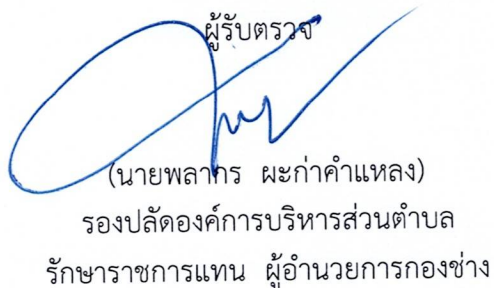 ผู้รับตรวจ
(นายพลากร ผะก่าคำแหลง)
รองปลัดองค์การบริหารส่วนตำบล
รักษาราชการแทน ผู้อำนวยการกองช่าง